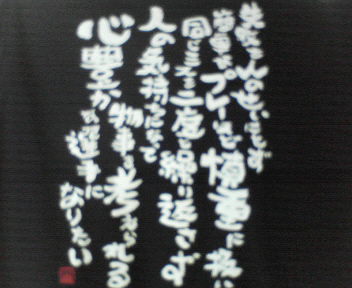 失敗を人のせいにせず
苦手なプレーほど慎重に扱い
同じミスを二度と繰り返さず
人の気持ちになって
物事を考えられる
心豊かな選手に
なりたい